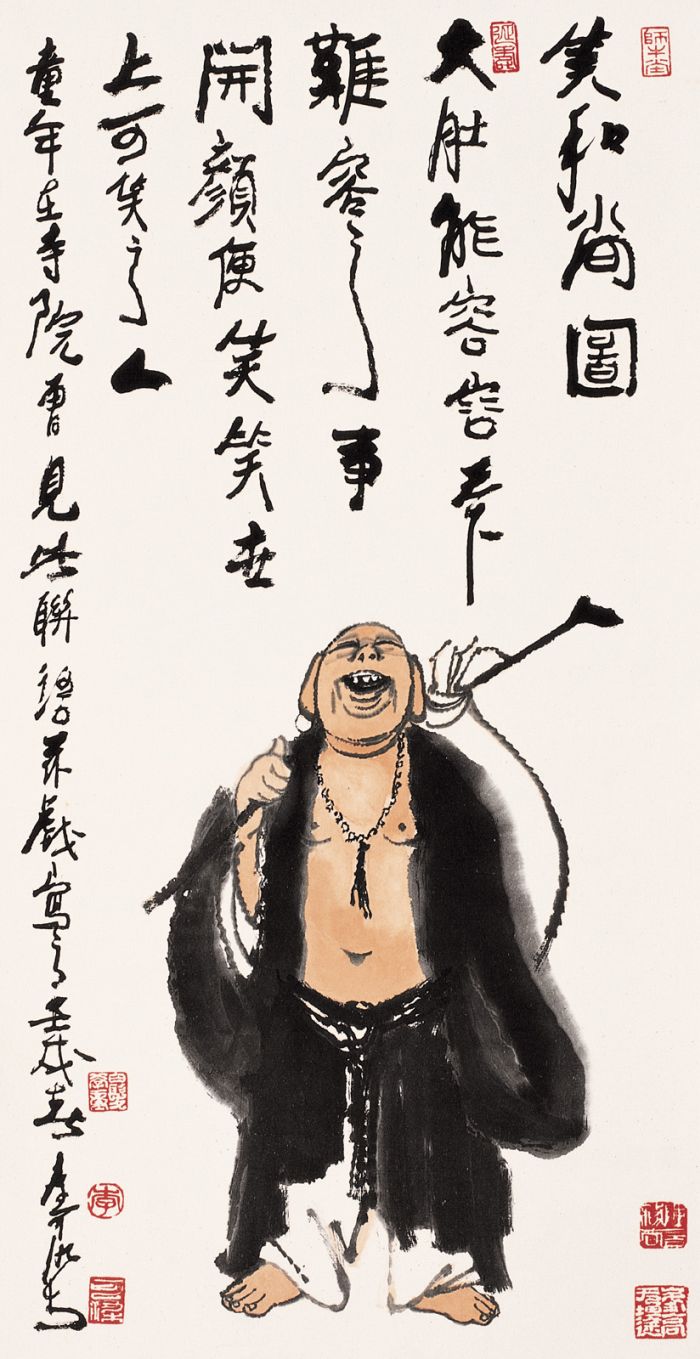 笑和尚圖
大肚能容容天下
難容之事
開顏便笑笑世
上可笑之人
童年在寺院曾見此聯語戲寫之壬戌春可染
師牛堂
李
可染